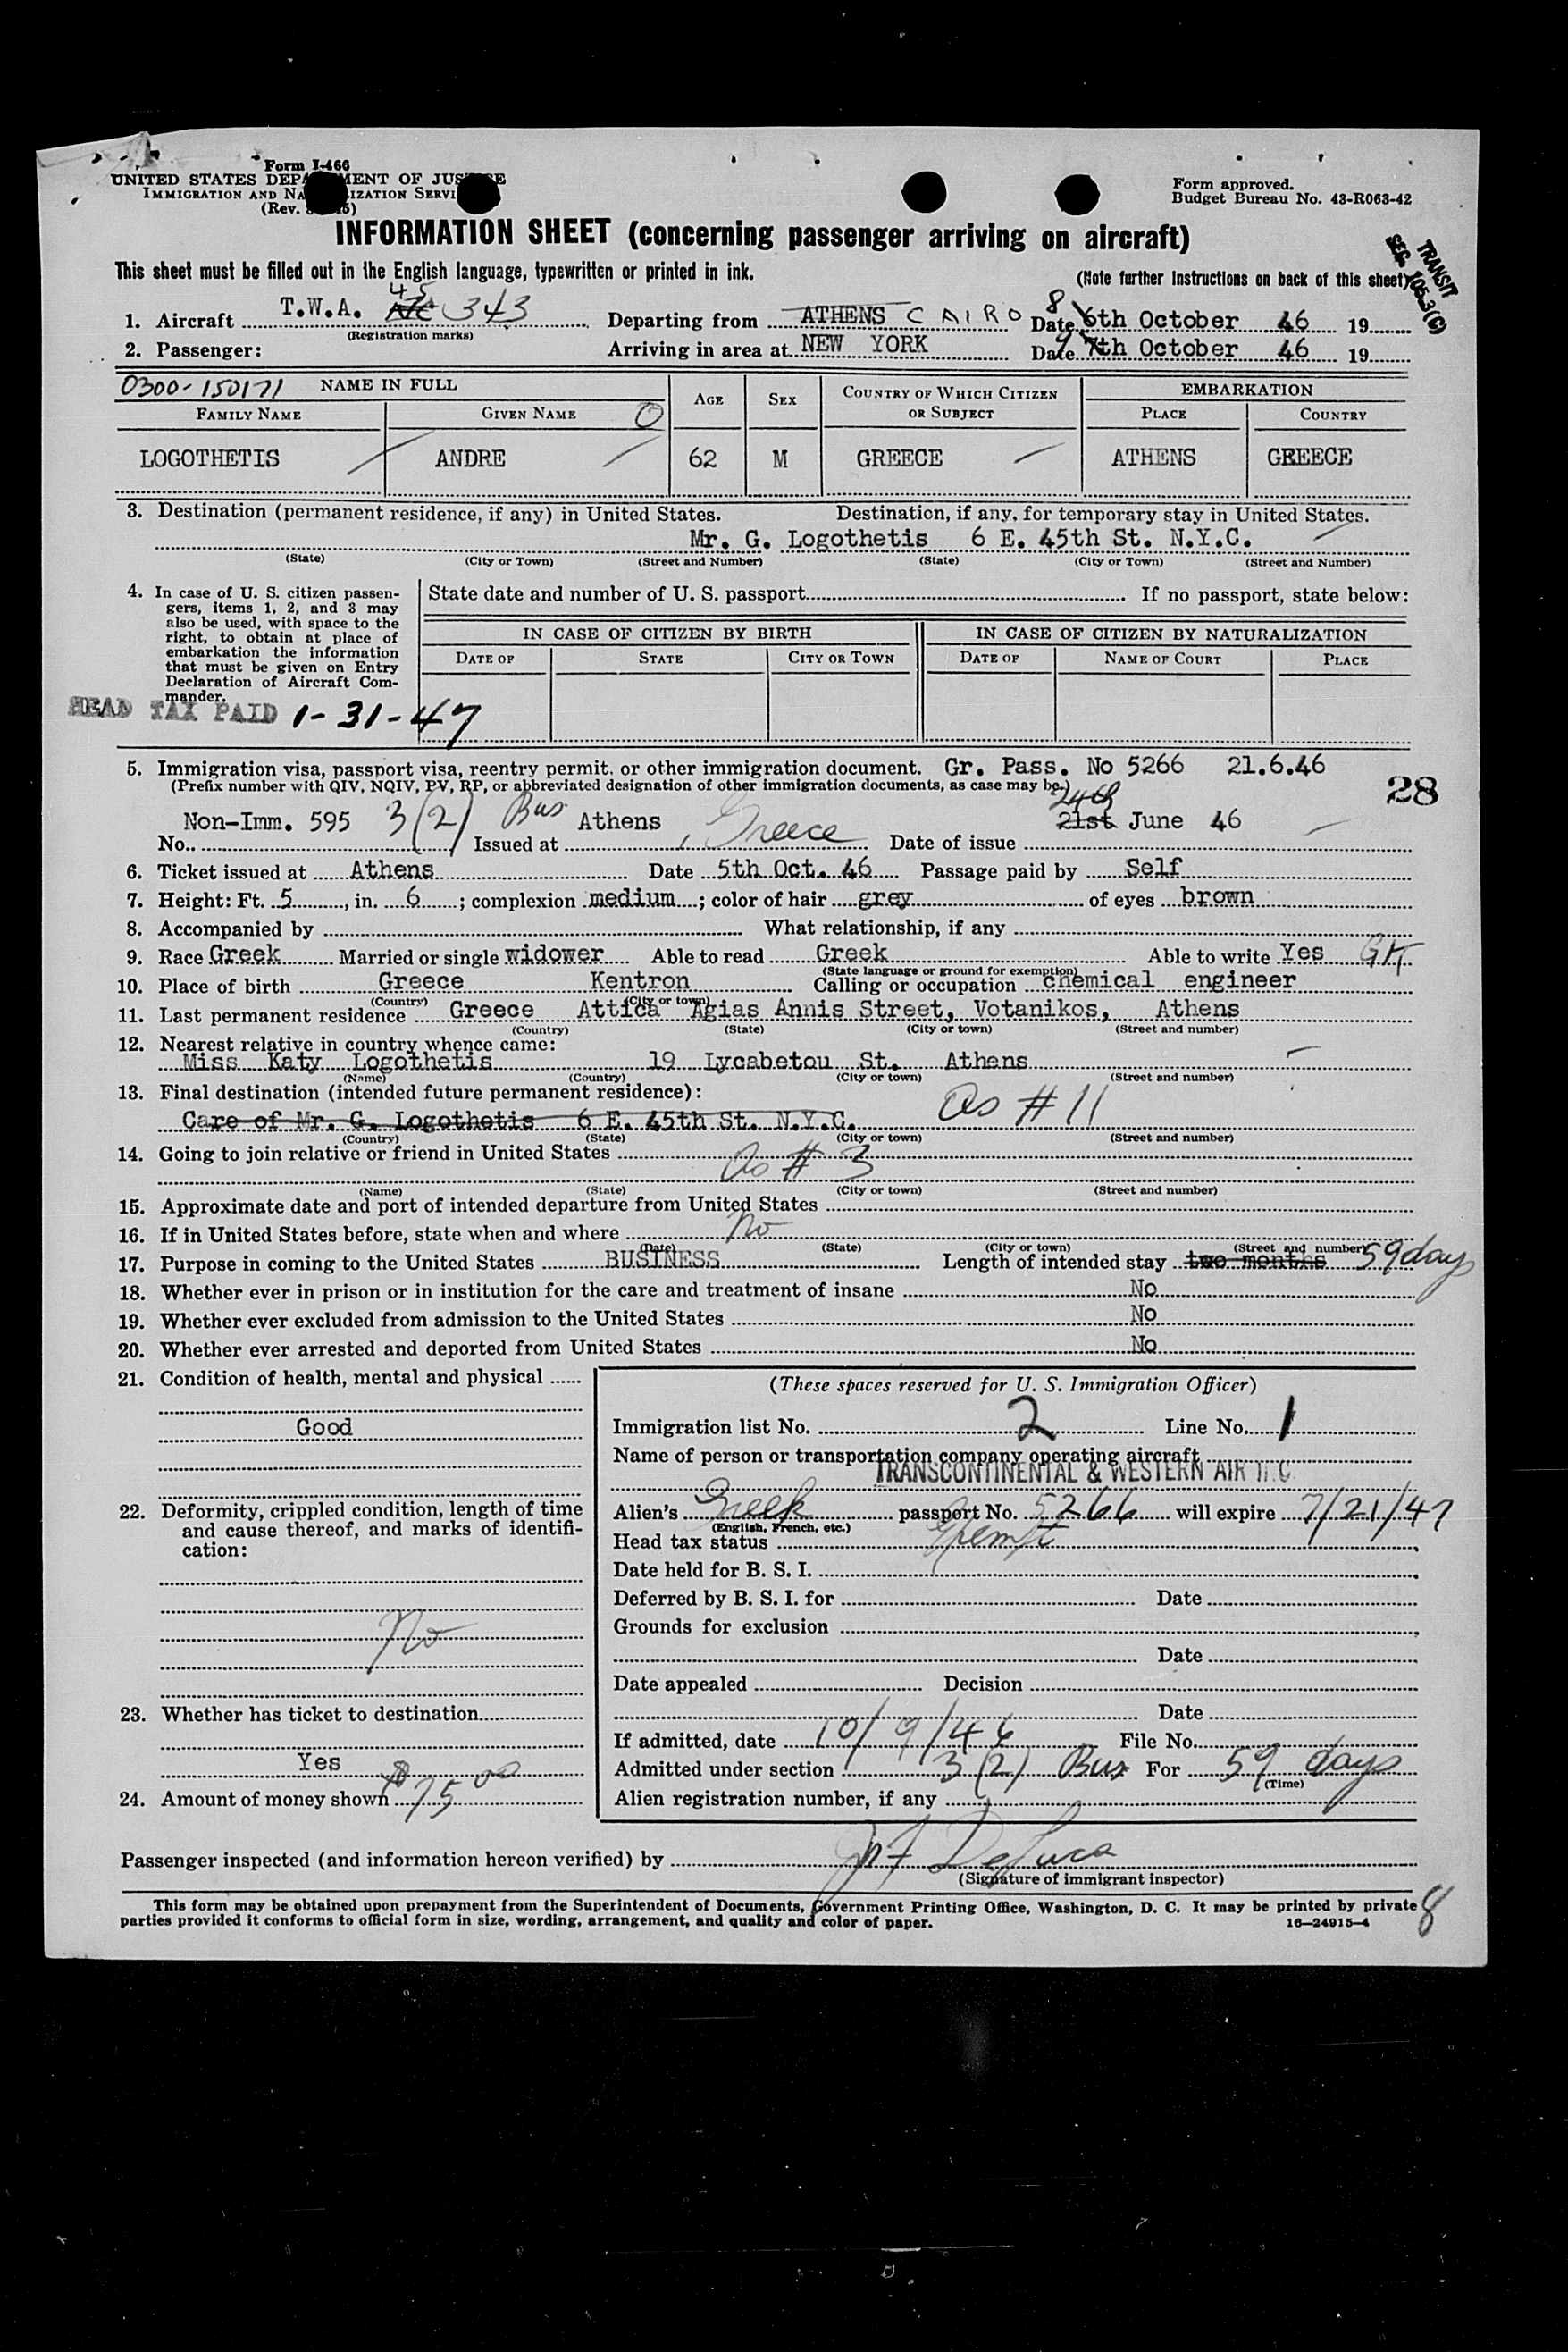 Form I-466
UNITED STATES DEPARTMENT OF JUSTICE
IMMIGRATION AND NATURALIZATION SERVICE
(Rev.
Form approved.
Budget Bureau No. 43-R063-42
INFORMATION SHEET (concerning passenger arriving on aircraft)
This sheet must be filled out in the English language, typewritten or printed in ink.
(Note further instructions on back of this sheet)
TRANSIT
SEC. 105.3(C)
45
1. Aircraft T.W.A. 343 Departing from ATHENS CAIRO Date 8 6th October 46 19
(Registration marks)
2. Passenger: Arriving in area at NEW YORK Date 9 7th October 46 19
0300-150171 NAME IN FULL AGE SEX COUNTRY OF WHICH CITIZEN OR SUBJECT EMBARKATION
FAMILY NAME GIVEN NAME O PLACE COUNTRY
LOGOTHETIS ANDRE 62 M GREECE ATHENS GREECE
3. Destination (permanent residence, if any) in United States. Destination, if any, for temporary stay in United States.
Mr. G. Logothetis 6 E. 45th St. N.Y.C.
(State) (City or Town) (Street and Number) (State) (City or Town) (Street and Number)
4. In case of U. S. citizen passen-
gers, items 1, 2, and 3 may
also be used, with space to the
right, to obtain at place of
embarkation the information
that must be given on Entry
Declaration of Aircraft Com-
mander.
State date and number of U. S. passport If no passport, state below:
IN CASE OF CITIZEN BY BIRTH IN CASE OF CITIZEN BY NATURALIZATION
DATE OF STATE CITY OR TOWN DATE OF NAME OF COURT PLACE
HEAD TAX PAID 1-31-47
5. Immigration visa, passport visa, reentry permit, or other immigration document. Gr. Pass. No 5266 21.6.46
(Prefix number with QIV, NQIV, PV, RP, or abbreviated designation of other immigration documents, as case may be.)
28
24th
Non-Imm. 595 3(2) Bus Athens, Greece 21st June 46
No. Issued at Date of issue
6. Ticket issued at Athens Date 5th Oct. 46 Passage paid by Self
7. Height: Ft. 5, in. 6; complexion medium; color of hair grey of eyes brown
8. Accompanied by What relationship, if any
9. Race Greek Married or single widower Able to read Greek Able to write Yes GK
(State language or ground for exemption)
10. Place of birth Greece Kentron Calling or occupation chemical engineer
(Country) (City or town)
11. Last permanent residence Greece Attica Agias Annis Street, Votanikos, Athens
(Country) (State) (City or town) (Street and number)
12. Nearest relative in country whence came:
Miss Katy Logothetis 19 Lycabetou St. Athens
(Name) (Country) (City or town) (Street and number)
13. Final destination (intended future permanent residence):
Care of Mr. G. Logothetis 6 E. 45th St. N.Y.C. As # 11
(Country) (State) (City or town) (Street and number)
14. Going to join relative or friend in United States
As # 3
(Name) (State) (City or town) (Street and number)
15. Approximate date and port of intended departure from United States
16. If in United States before, state when and where No
(Date) (State) (City or town) (Street and number)
17. Purpose in coming to the United States BUSINESS Length of intended stay two months 59 days
18. Whether ever in prison or in institution for the care and treatment of insane No
19. Whether ever excluded from admission to the United States No
20. Whether ever arrested and deported from United States No
21. Condition of health, mental and physical
Good
22. Deformity, crippled condition, length of time
and cause thereof, and marks of identifi-
cation:
No
23. Whether has ticket to destination
Yes
24. Amount of money shown $75 00
(These spaces reserved for U. S. Immigration Officer)
Immigration list No. 2 Line No. 1
Name of person or transportation company operating aircraft
TRANSCONTINENTAL & WESTERN AIR INC
Alien's Greek passport No. 5266 will expire 7/21/47
(English, French, etc.)
Head tax status Exempt
Date held for B. S. I.
Deferred by B. S. I. for Date
Grounds for exclusion
Date
Date appealed Decision
Date
If admitted, date 10/9/46 File No.
Admitted under section 3(2) Bus For 59 days
(Time)
Alien registration number, if any
Passenger inspected (and information hereon verified) by
(Signature of immigrant inspector)
This form may be obtained upon prepayment from the Superintendent of Documents, Government Printing Office, Washington, D. C. It may be printed by private
parties provided it conforms to official form in size, wording, arrangement, and quality and color of paper.
16—24915-4
8